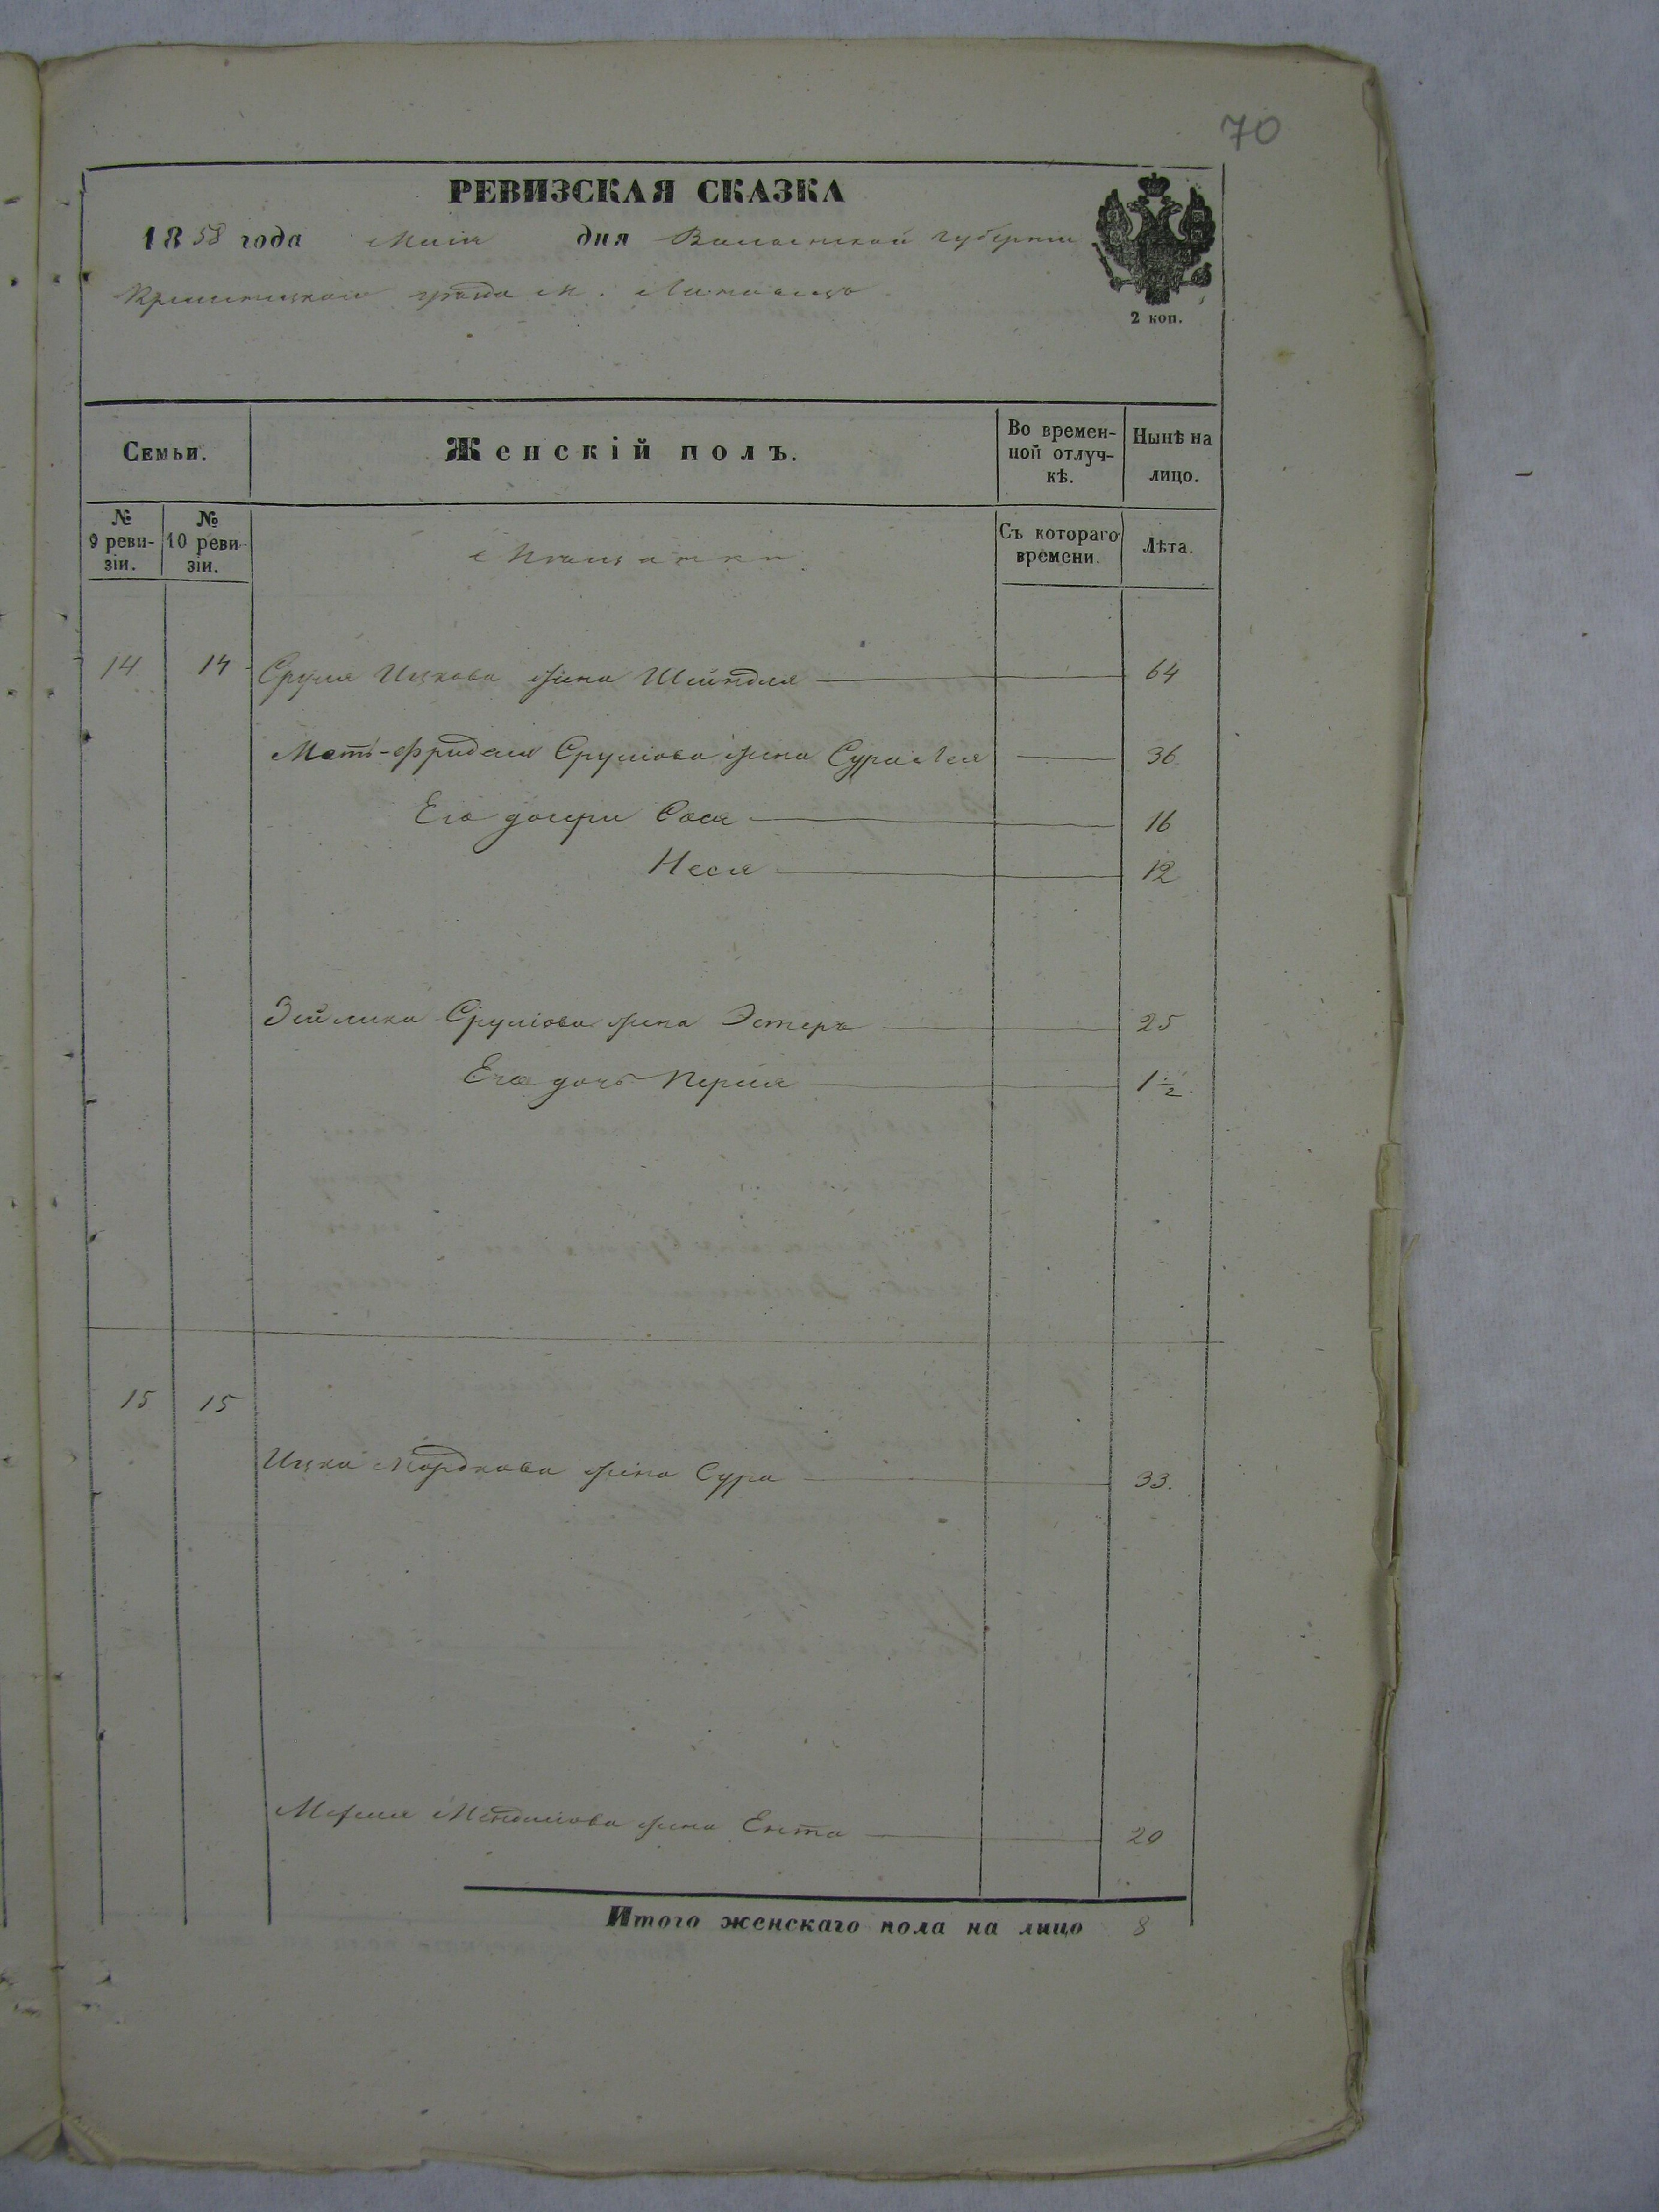 70
РЕВИЗСКАЯ СКАЗКА
1858 года Маія дня Волынской губерніи
Кременецкаго уѣзда м. Лановецъ
2 коп.
Семьи.
Женскій полъ.
Во времен-
ной отлуч-
кѣ.
Нынѣ на
лицо.
№
9 реви-
зіи.
№
10 реви-
зіи.
Мѣщанки.
Съ котораго
времени.
Лѣта.
14 14 Сруля Ицкова жена Шейндля 64
Моть-Фридель Срулiова жена Сура 36
Его дочери Сося 16
Неся 12
Зейлика Срулiова жена Эстеръ 25
Его дочь Перля 1½
15 15
Ицка Мордкова жена Сура 33.
жена Ента 20
Итого женскаго пола на лицо 8